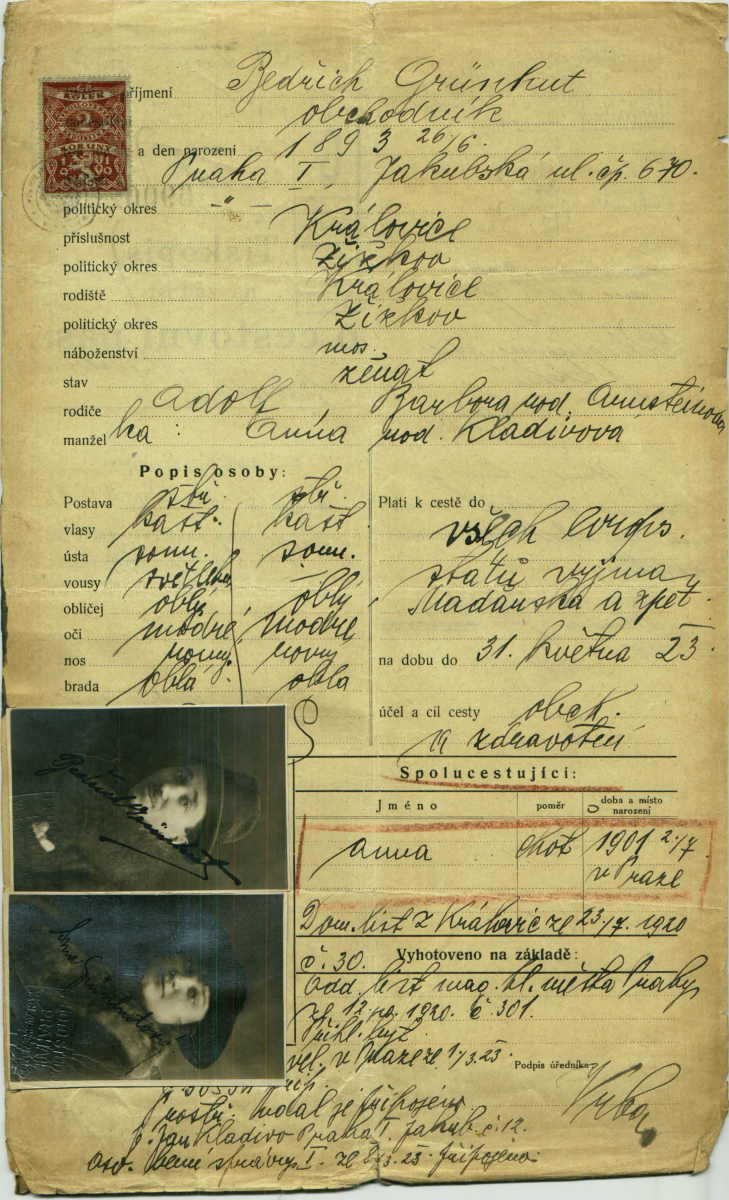 příjmení Bedřich Grünhut
obchodník
a den narození 1893 26/6.
Praha I, Jakubská ul. čp. 670.
politický okres -"-
příslušnost Královice
politický okres Žižkov
rodiště Královice
politický okres Žižkov
náboženství mos.
stav ženat
rodiče Adolf, Barbora rod. Arnsteinova
manžel ka: Anna rod. Kladivová
Popis osoby:
Postava stř. stř.
vlasy kašt. kašt.
ústa norm. norm.
vousy světlehn. —
obličej oblý oblý
oči modré modré
nos rovný rovný
brada oblá oblá
Platí k cestě do
všech evrops.
států vyjma
Maďarska a zpět.
na dobu do 31. května 23.
účel a cíl cesty obch.
a zdravotní
Spolucestující:
Jméno poměr doba a místo narození
Anna choť 1901 2./7.
v Praze
Dom. list z Královic ze 23./7. 1920
č. 30. Vyhotoveno na základě:
Odd. list mag. hl. města Prahy
ze 12. 1920. č. 301.
Přihl.
v Praze ze 1./3. 23.
Podpis úředníka Vrba
příp.
je připojeno
p. Jan Kladivo Praha I. Jakub. č. 12.
Osv. berní správy I. ze 8./3. 23. připojeno.